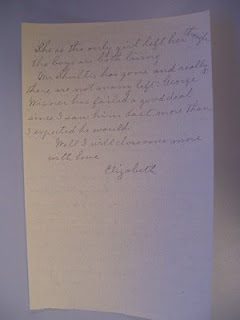 She is the only girl left her though
the boys are both living
Mr. has gone and really
there are not many left. George
Wisner has failed a good deal
since I saw him last more than
I expected he would
Well I will close once more
with love
Elizabeth